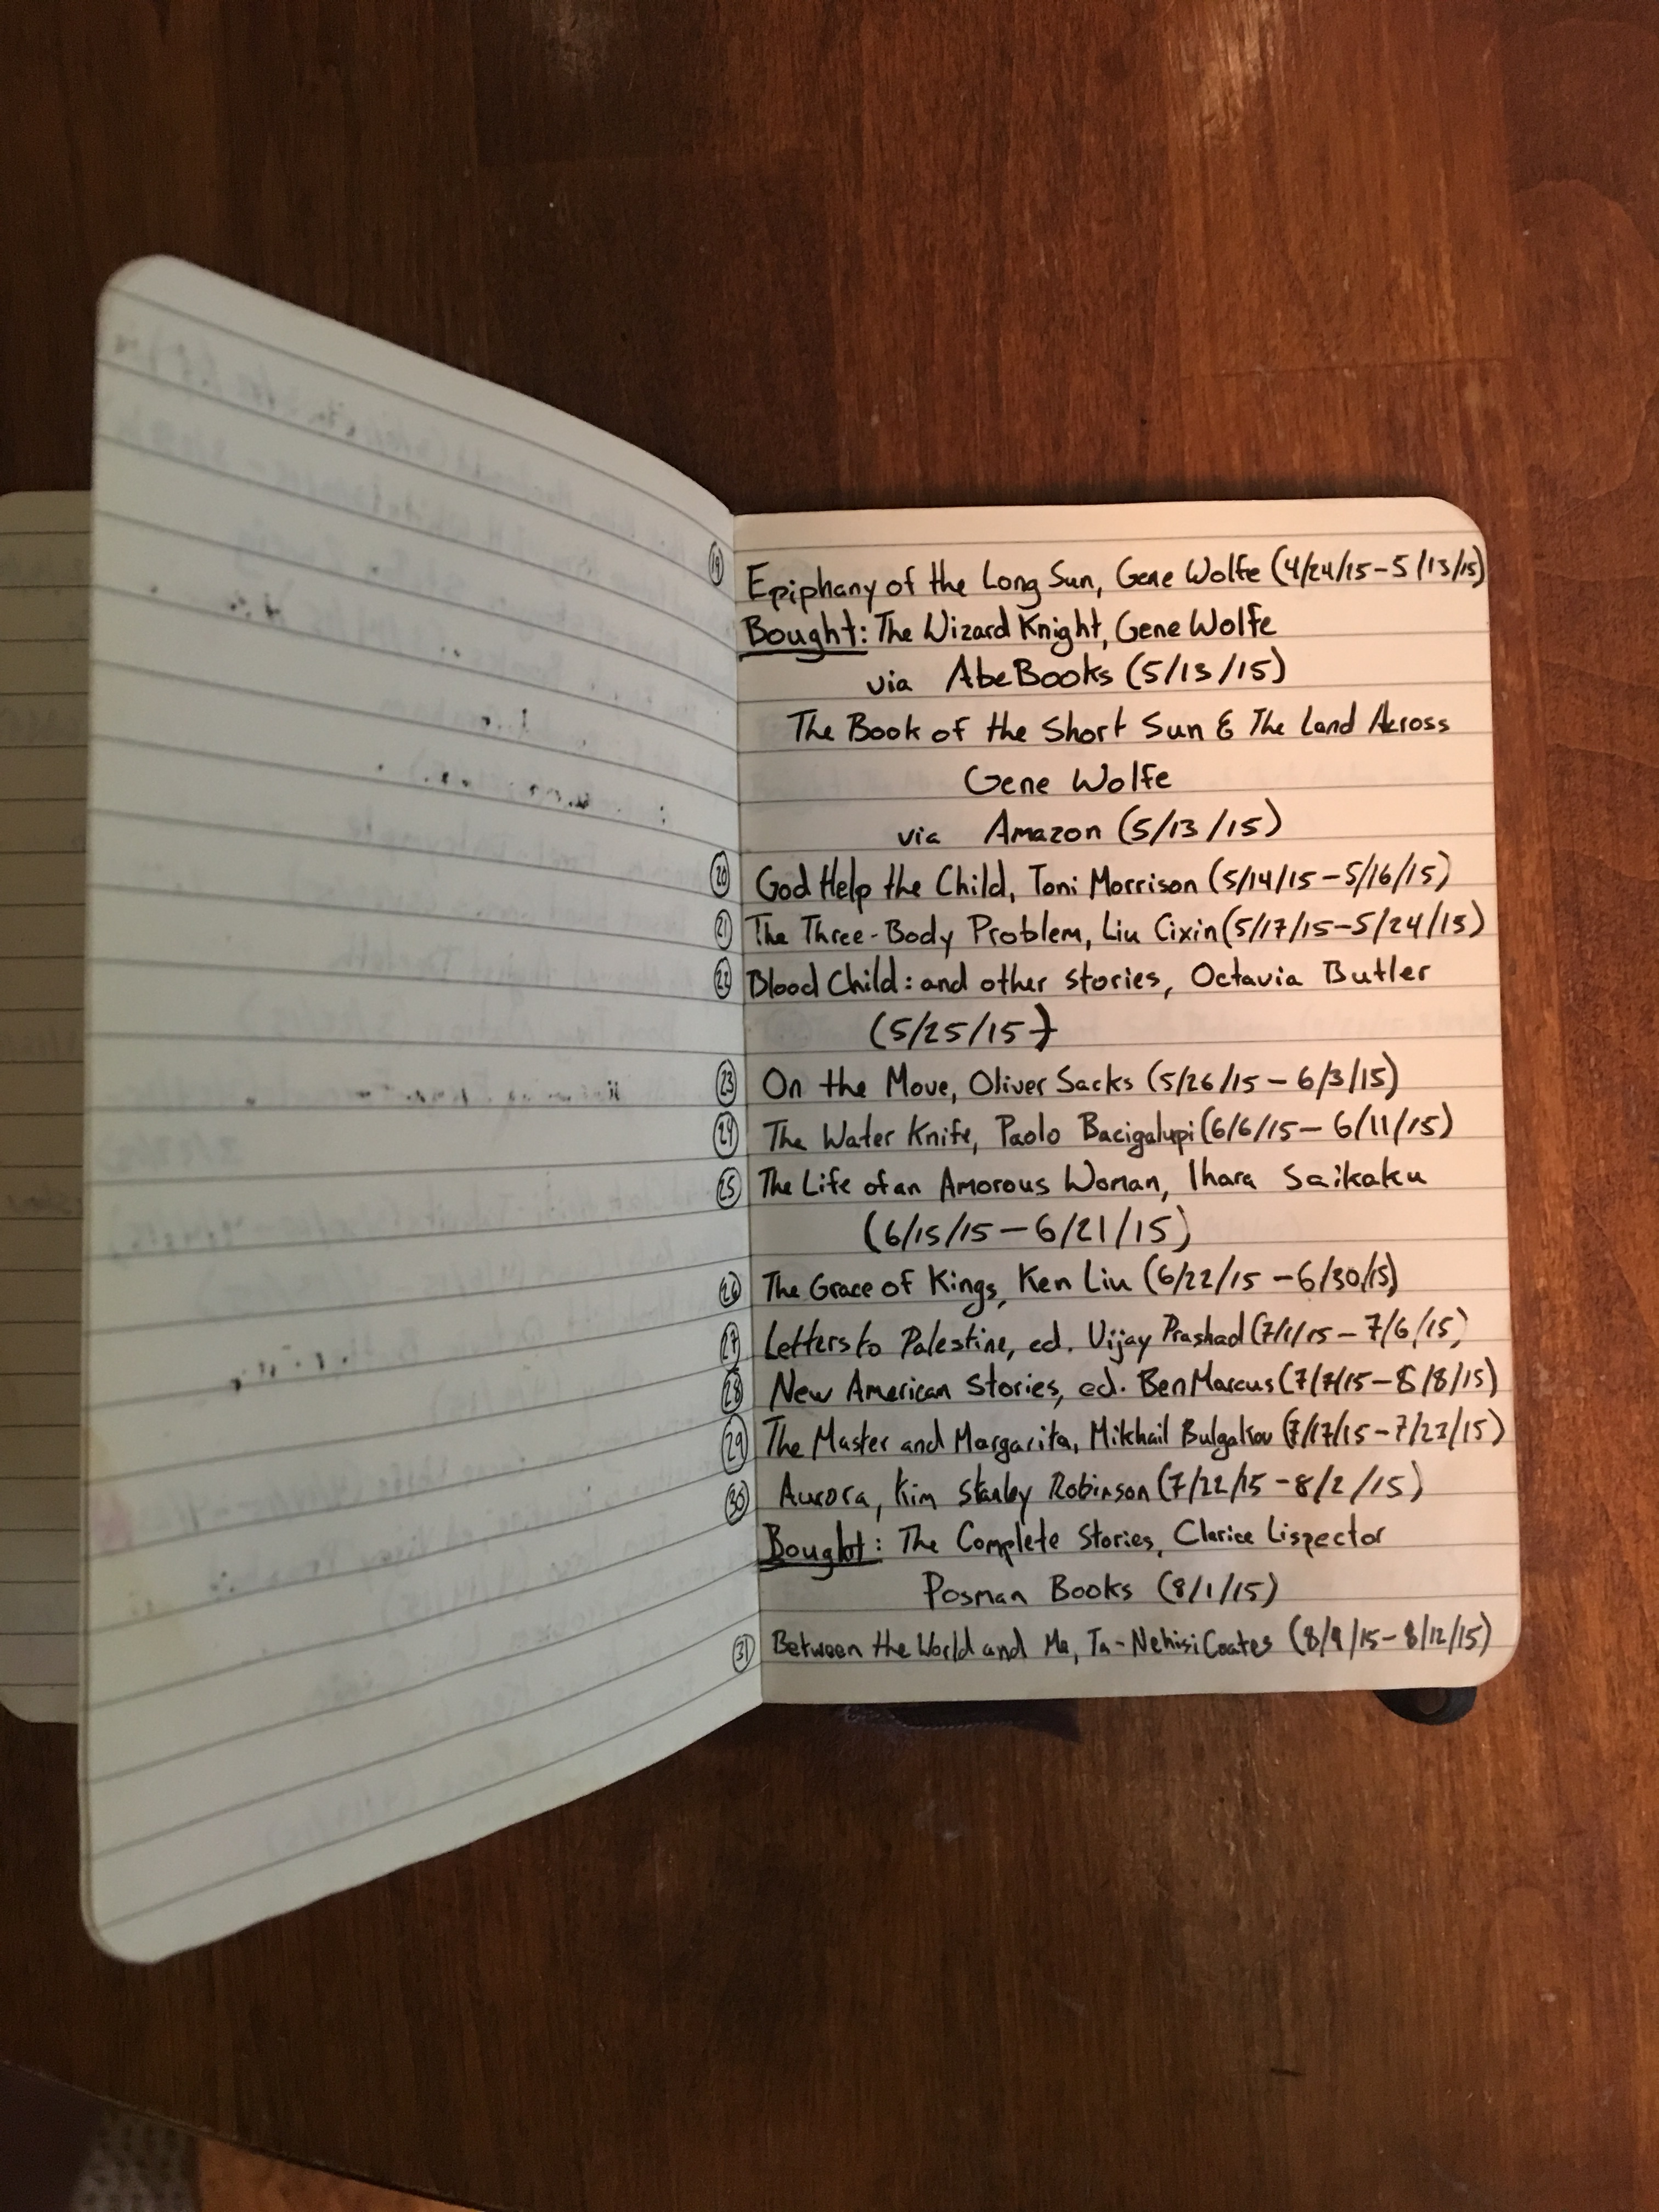 ⑲ Epiphany of the Long Sun, Gene Wolfe (4/24/15-5/13/15)
Bought: The Wizard Knight, Gene Wolfe
via AbeBooks (5/13/15)
The Book of the Short Sun & The Land Across
Gene Wolfe
via Amazon (5/13/15)
⑳ God Help the Child, Toni Morrison (5/14/15-5/16/15)
㉑ The Three-Body Problem, Liu Cixin (5/17/15-5/24/15)
㉒ Blood Child: and other stories, Octavia Butler
(5/25/15)
㉓ On the Move, Oliver Sacks (5/26/15 - 6/3/15)
㉔ The Water Knife, Paolo Bacigalupi (6/6/15 - 6/11/15)
㉕ The Life of an Amorous Woman, Ihara Saikaku
(6/15/15 - 6/21/15)
㉖ The Grace of Kings, Ken Liu (6/22/15 - 6/30/15)
㉗ Letters to Palestine, ed. Vijay Prashad (7/1/15 - 7/6/15)
㉘ New American Stories, ed. Ben Marcus (7/7/15 - 8/8/15)
㉙ The Master and Margarita, Mikhail Bulgakov (7/17/15 - 7/23/15)
㉚ Aurora, Kim Stanley Robinson (7/22/15 - 8/2/15)
Bought: The Complete Stories, Clarice Lispector
Posman Books (8/1/15)
㉛ Between the World and Me, Ta-Nehisi Coates (8/9/15 - 8/12/15)